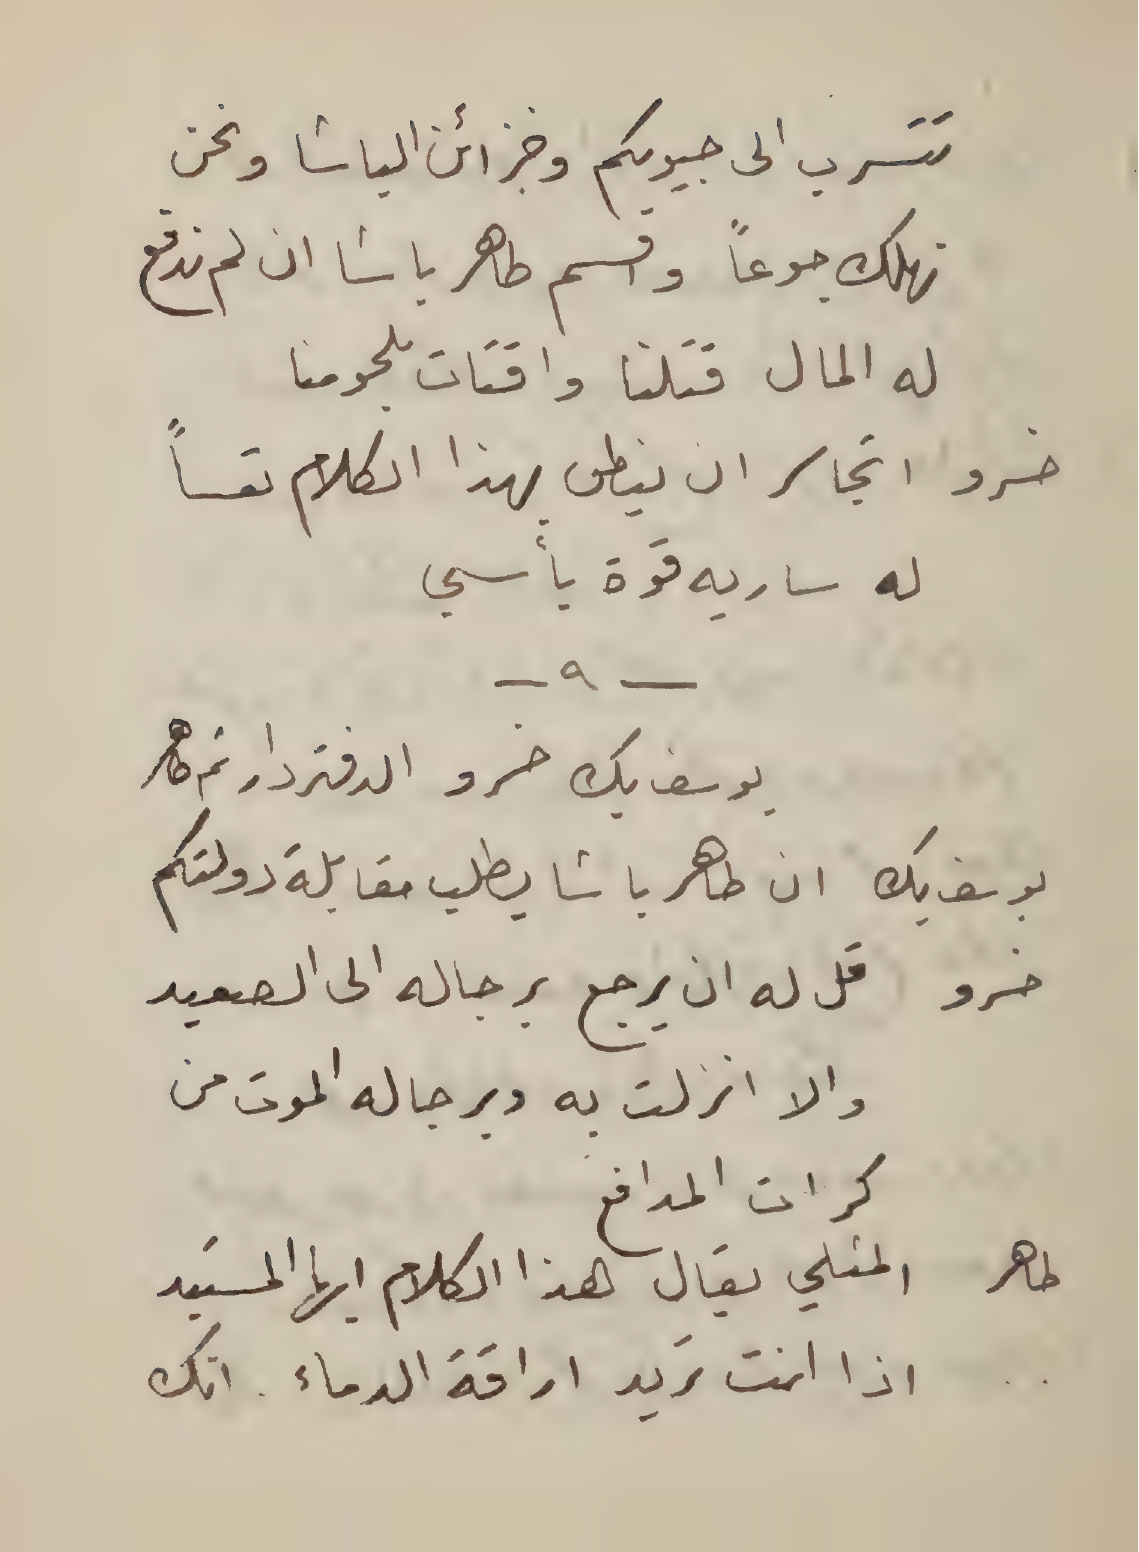 تتسرب الى جيوبكم وخزائن الباشا ونحن
نهلك جوعاً واقسم طاهر باشا ان لم ندفع
له المال قتلنا واقتات بلحومنا
خسرو اتجاسر ان ينطق بهذا الكلام تعساً
له ساريه قوة بأسي
— ٩ —
يوسف بك خسرو الدفتردار ثم طاهر
يوسف بك ان طاهر باشا يطلب مقابلة دولتكم
خسرو قل له ان يرجع برجاله الى الصعيد
والا انزلت به وبرجاله الموت من
كرات المدافع
طاهر المثلي يقال هذا الكلام ايها المستبد
اذا انت تريد اراقة الدماء . انك